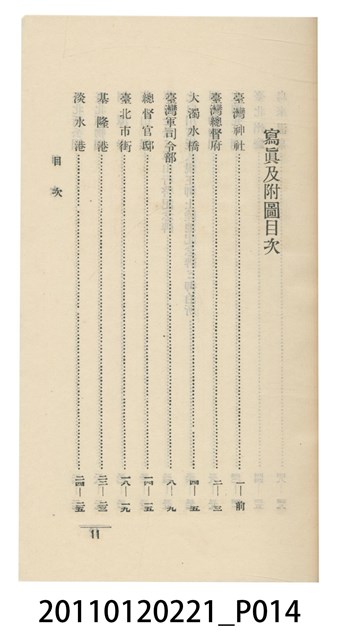 寫眞及附圖目次
臺灣神社……一—前
臺灣總督府……二—三
大濁水橋……四—五
臺灣軍司令部……八—九
總督官邸……一四—一五
臺北市街……一八—一九
基隆港……二二—二三
淡水港……二四—二五
目次
二
20110120221_P014